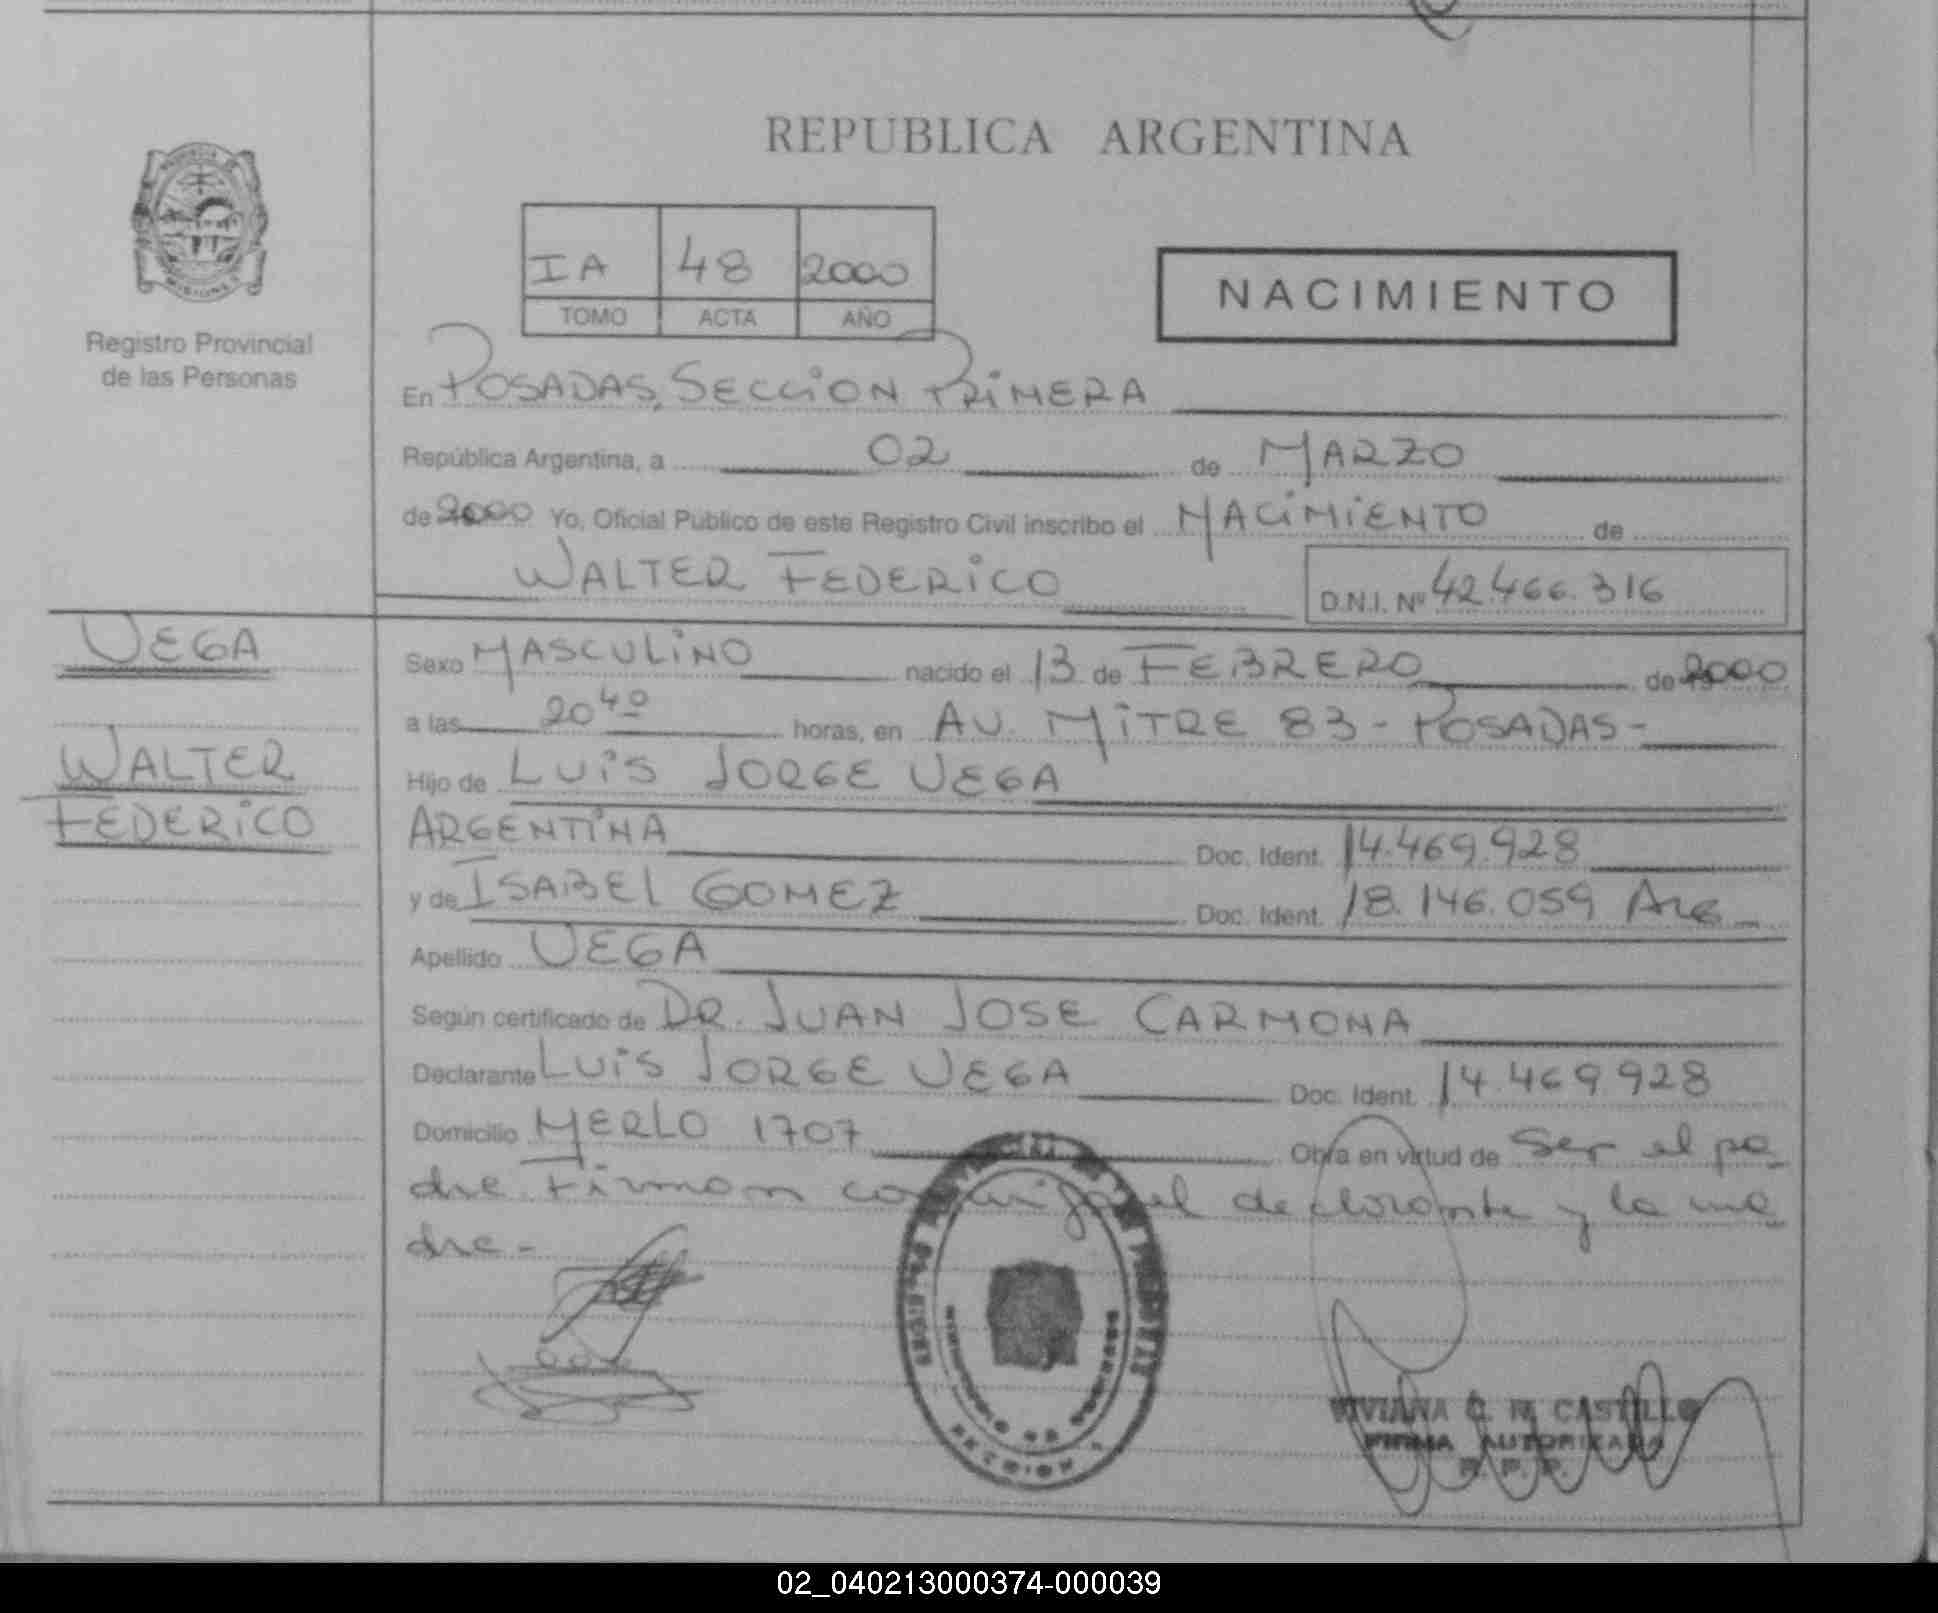 REPUBLICA ARGENTINA
IA 48 2000
TOMO ACTA AÑO
NACIMIENTO
PROVINCIA
MISIONES
Registro Provincial
de las Personas
En POSADAS, SECCION PRIMERA
República Argentina, a 02 de MARZO
de 2000 Yo, Oficial Público de este Registro Civil inscribo el NACIMIENTO de
WALTER FEDERICO
D.N.I. Nº 42.466.316
VEGA
WALTER
FEDERICO
Sexo MASCULINO nacido el 13 de FEBRERO de 2000
a las 20 40 horas, en AV. MITRE 83 - POSADAS -
Hijo de LUIS JORGE VEGA
ARGENTINA Doc. Ident. 14.469.928
y de ISABEL GOMEZ Doc. Ident. 18.146.059 ARG -
Apellido VEGA
Según certificado de DR. JUAN JOSE CARMONA
Declarante LUIS JORGE VEGA Doc. Ident. 14.469.928
Domicilio MERLO 1707 Obra en virtud de Ser el pa
dre Firman conmigo el declarante y la ma
dre -
VIVIANA C. CASTILLO
FIRMA AUTORIZADA
R. P. P.
02_040213000374-000039